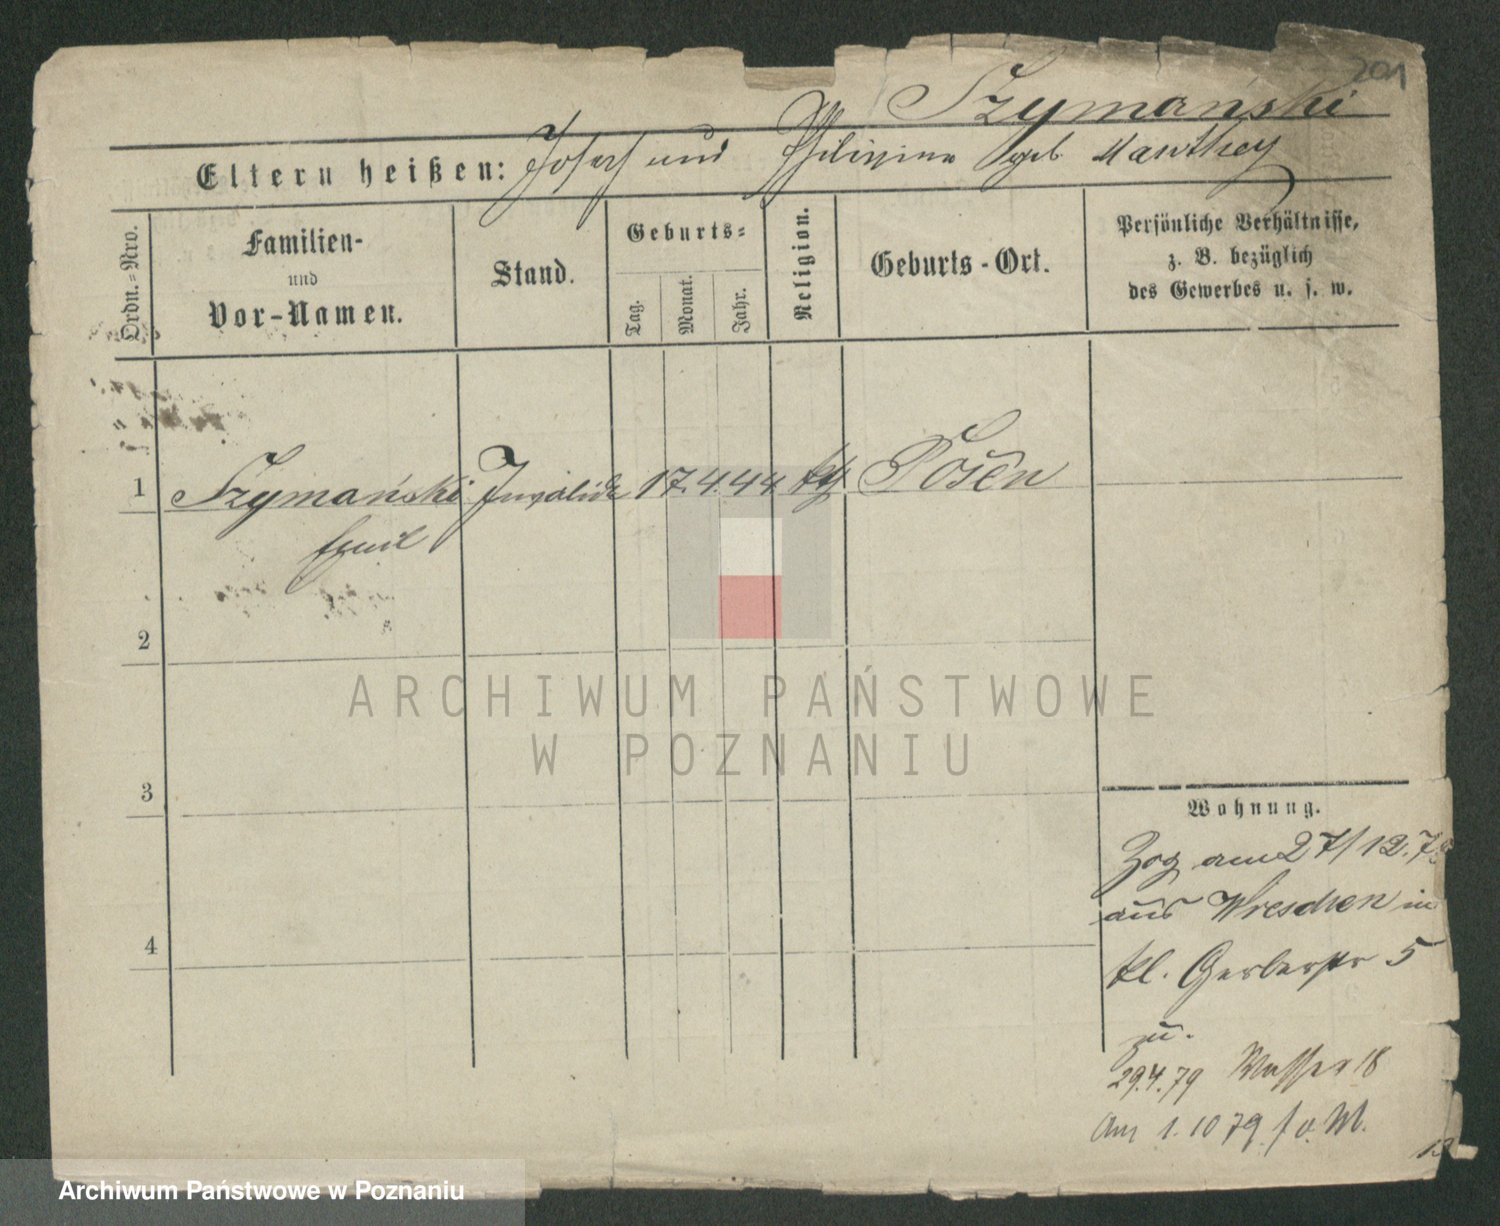 201
Szymański
Eltern heißen: Josef und Philippine geb Manthey
Ordn.-Nro.
Familien-
und
Vor-Namen.
Stand.
Geburts-
Tag.
Monat.
Jahr.
Religion.
Geburts-Ort.
Persönliche Verhältnisse,
z. B. bezüglich
des Gewerbes u. s. w.
1 Szymański Invalide 17. 4. 44 kth Posen
Emil
2
3
4
ARCHIWUM PAŃSTWOWE
W POZNANIU
Wohnung.
Zog am 27/12.78
aus Wreschen in
kl. Gerberstr 5
zu.
29.4.79 Wasser 18
Am 1. 10 79
Archiwum Państwowe w Poznaniu